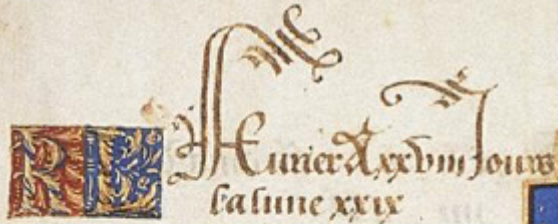 KL Feurier A xxviii Jours
La lune xxix